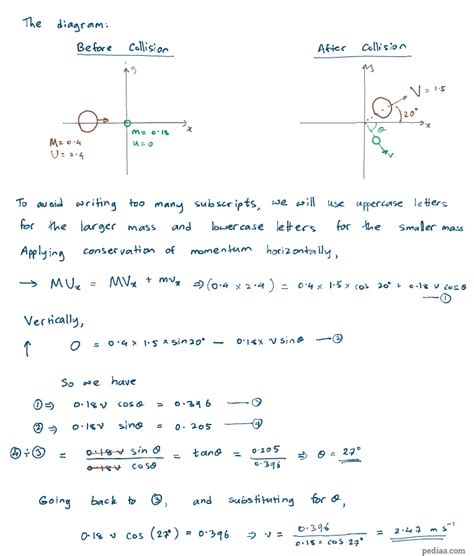 The diagram:
Before Collision
After Collision
y
x
M=0.4
U=2.4
m=0.18
u=0
y
V=1.5
20°
θ
x
v
To avoid writing too many subscripts, we will use uppercase letters
for the larger mass and lowercase letters for the smaller mass
Applying conservation of momentum horizontally,
→ MUₓ = MVₓ + mvₓ ⇒ (0.4 × 2.4) = 0.4 × 1.5 × cos 20° + 0.18 v cosθ
—①
Vertically,
↑ 0 = 0.4 × 1.5 × sin20° − 0.18 × v sinθ —②
So we have
①⇒ 0.18v cosθ = 0.396 —③
②⇒ 0.18v sinθ = 0.205 —④
④÷③ = 0.18 v sinθ / 0.18 v cosθ = tanθ = 0.205 / 0.396 ⇒ θ = 27°
Going back to ③, and substituting for θ,
0.18 v cos (27°) = 0.396 ⇒ v = 0.396 / 0.18 × cos 27° = 2.47 m s⁻¹
pediaa.com